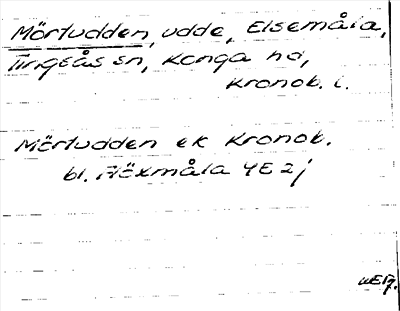 Mörtudden, udde, Elsemåla,
Tingsås sn, Konga hd,
Kronob. l.
Mörtudden ek Kronob.
bl. Höxmåla 4E2j